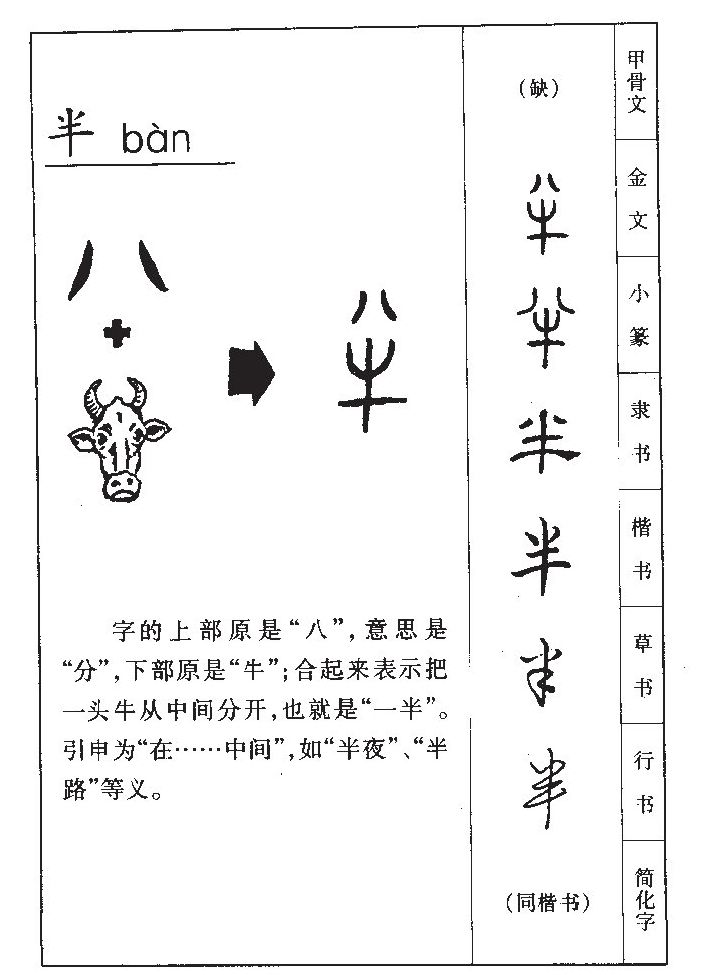 半 bàn
八
半
字的上部原是“八”，意思是
“分”，下部原是“牛”；合起来表示把
一头牛从中间分开，也就是“一半”。
引申为“在……中间”，如“半夜”、“半
路”等义。
（缺）
甲骨文
半
金文
半
小篆
半
隶书
半
楷书
半
草书
半
行书
（同楷书）
简化字